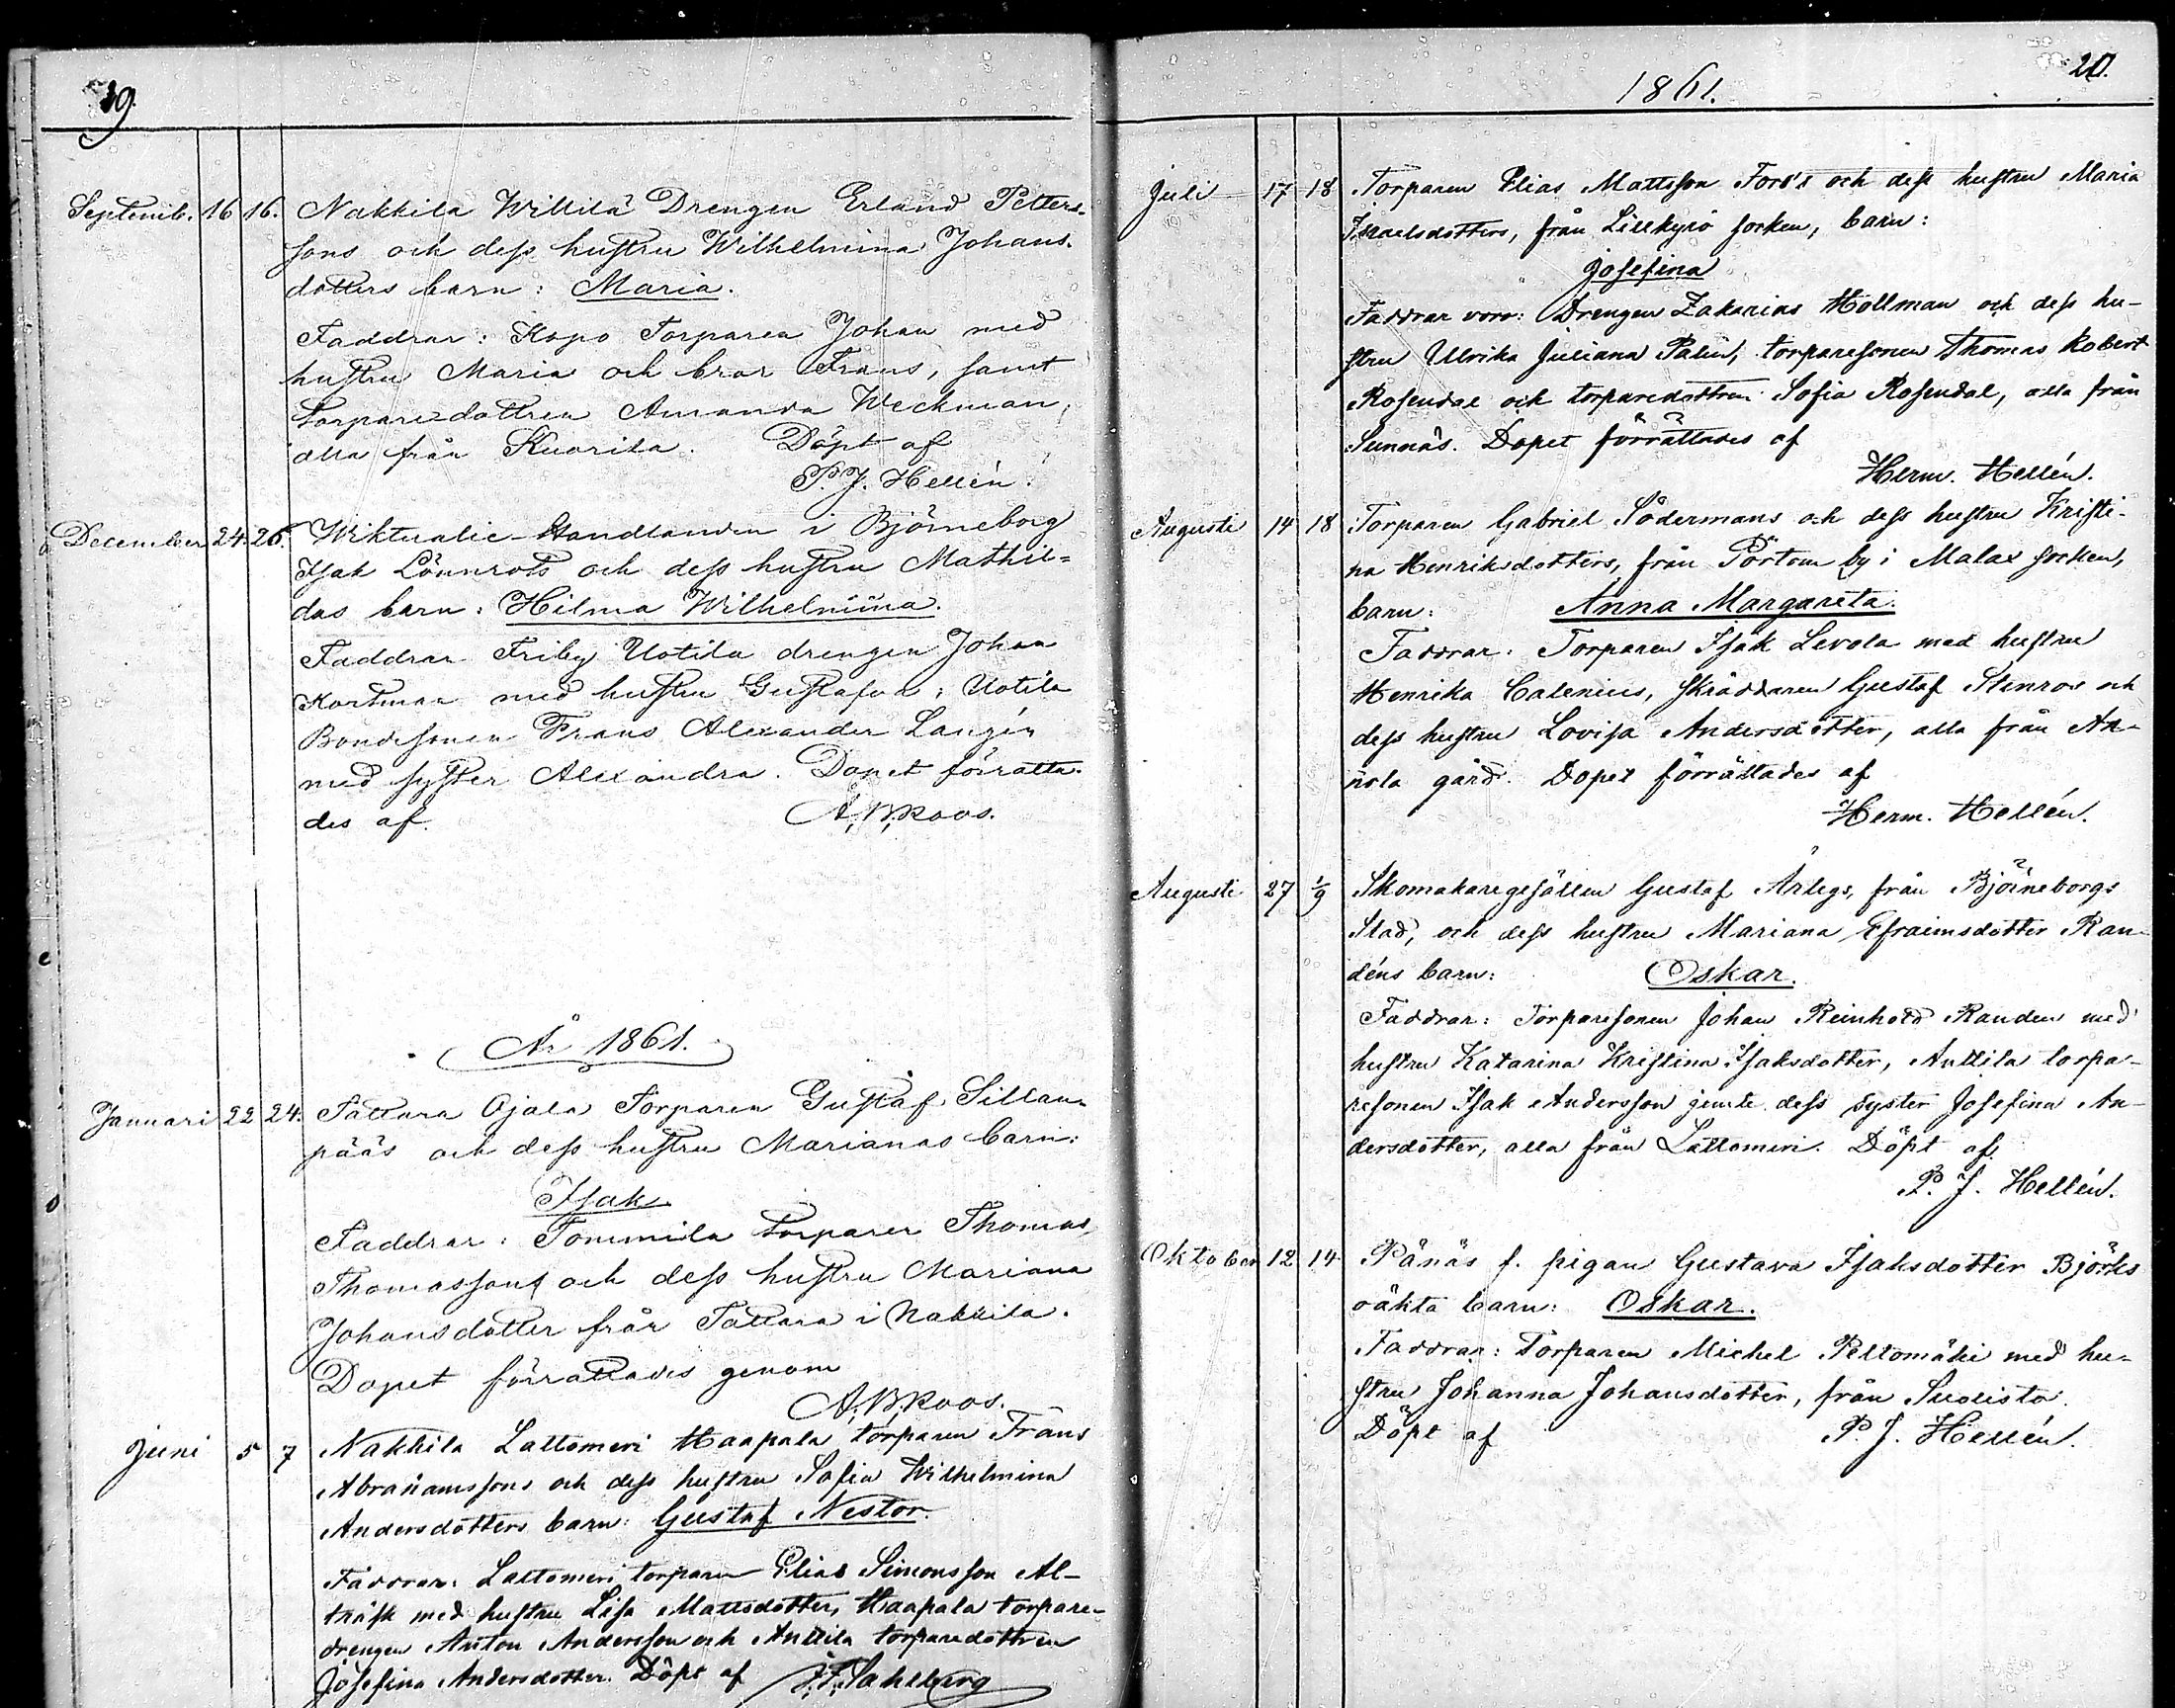 19.
Septemb. 16 16. Nakkila Willilä Drengen Erland Petters-
sons och dess hustru Wilhelmina Johans-
dotters barn: Maria.
Faddrar: Kopo Torparen Johan med
hustru Maria och bror Frans, samt
Torparedottren Amanda Weckman,
alla från Kuorila. Döpt af
P. J. Hellén.
December 24. 26. Wiktualie-Handlanden i Björneborg
Isak Lönnrots och dess hustru Mathil-
das barn: Hilma Wilhelmina.
Faddrar Friby Uotila drengen Johan
Kortman med hustru Gustafva; Uotila
Bondesonen Frans Alexander Langén
med syster Alexandra. Dopet förrätta-
des af. A. B. Roos.
År 1861.
Januari 22 24. Tattara Ojala Torparen Gustaf Sillan-
pääs och dess hustru Marianas barn:
Isak
Faddrar: Tommila torparen Thomas
Thomassons och dess hustru Mariana
Johansdotter från Tattara i Nakkila.
Dopet förrättades genom
A. B. Roos.
Juni 5 7 Nakkila Lattomeri Haapala torparen Frans
Abrahamssons och dess hustru Sofia Wilhelmina
Andersdotters barn: Gustaf Nestor.
Faddrar: Lattomeri torparen Elias Simonsson Al-
träsk med hustru Lisa Mattsdotter, Haapala torpare-
drengen Anton Andersson och Anttila torparedottren
Josefina Andersdotter. Döpt af J. F. Sahlberg
20.
1861.
Juli 17 18 Torparen Elias Mattsson Fors's och dess hustru Maria
Israelsdotters, från Lillkyrö socken, barn:
Josefina
Faddrar voro: Drengen Zakarias Hollman och dess hu-
stru Ulrika Juliana Palin, torparesonen Thomas Robert
Rosendal och torparedottren Sofia Rosendal, alla från
Sunnäs. Dopet förrättades af
Herm. Hellén.
Augusti 14 18 Torparen Gabriel Södermans och dess hustru Kristi-
na Henriksdotters, från Pörtom by i Malax socken,
barn: Anna Margareta.
Faddrar: Torparen Isak Levola med hustru
Henrika Calenius, skräddaren Gustaf Stenros och
dess hustru Lovisa Andersdotter, alla från An-
nola gård. Dopet förrättades af
Herm. Hellén.
Augusti 27 1/9 Skomakaregesällen Gustaf Ärlegs, från Björneborgs
Stad, och dess hustru Mariana Efraimsdotter Ran-
déns barn: Oskar.
Faddrar: Torparesonen Johan Reinhold Randen med
hustru Katarina Kristina Isaksdotter, Anttila torpa-
resonen Isak Andersson jemte dess syster Josefina An-
dersdotter, alla från Lattomeri. Döpt af
P. J. Hellén.
Oktober 12 14 Pänäs f. pigan Gustava Isaksdotter Björks
oäkta barn: Oskar.
Faddrar: Torparen Michel Peltomäki med hu-
stru Johanna Johansdotter, från Suolisto.
Döpt af P. J. Hellén.